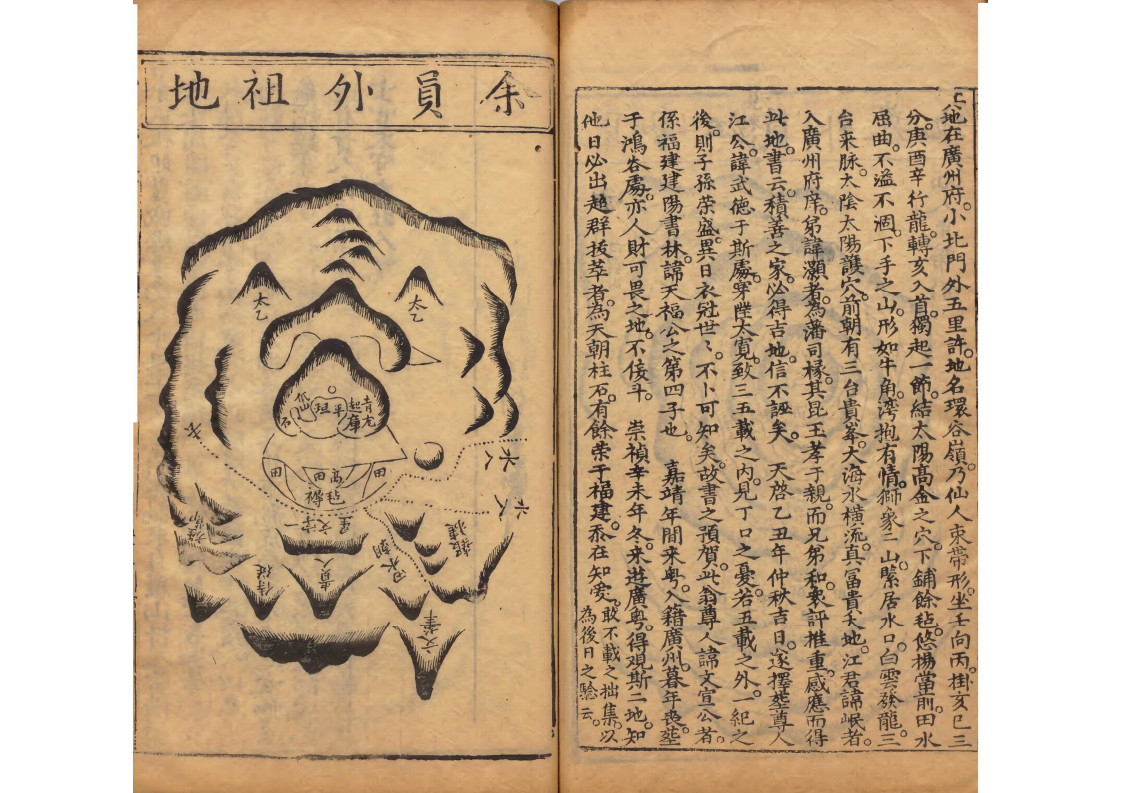 上地在廣州府。小北門外五里許。地名環谷嶺。乃仙人束帶形。坐壬向丙。掛亥巳三
分。庚酉辛行龍轉亥入首。獨起一節。結太陽高金之穴。下鋪餘毡。悠揚當前。田水
屈曲。不溢不涸。下手之山。形如牛角。灣抱有情。獅象二山緊居水口。白雲發龍。三
台來脉。太陰太陽護穴。前朝有三台貴峯。大海水橫流。真富貴大地。江君諱岷者。
入廣州府庠。弟諱灝者。為藩司椽。其昆王孝于親。而兄弟和。衆評推重。感應而得
此地。書云。積善之家。必得吉地。信不誣矣。天啓乙丑年仲秋吉日。遂擇塟尊人
江公。諱武德于斯處。穿陞太寬。致三五載之內。見丁口之憂。若五載之外。一紀之
後。則子孫荣盛。異日衣冠世〻。不卜可知矣。故書之預賀。此翁尊人諱文宣公者。
係福建建陽書林。諱天福公之第四子也。嘉靖年間來粤。入籍廣州。暮年喪塟
于鴻谷處。亦人財可畏之地。不俟斗。崇禎辛未年冬。来遊廣粤。得观斯二地。知
他日必出超群拔萃者。為天朝柱石。有餘荣于福建。忝在知愛。敢不載之拙集。以
為後日之驗云。
余員外祖地
太乙
太乙
青龙
起庫
平
坦
田
高
田
田
毡
褥
水八
水八
一字文星
朝水
貴人
侍従
文筆